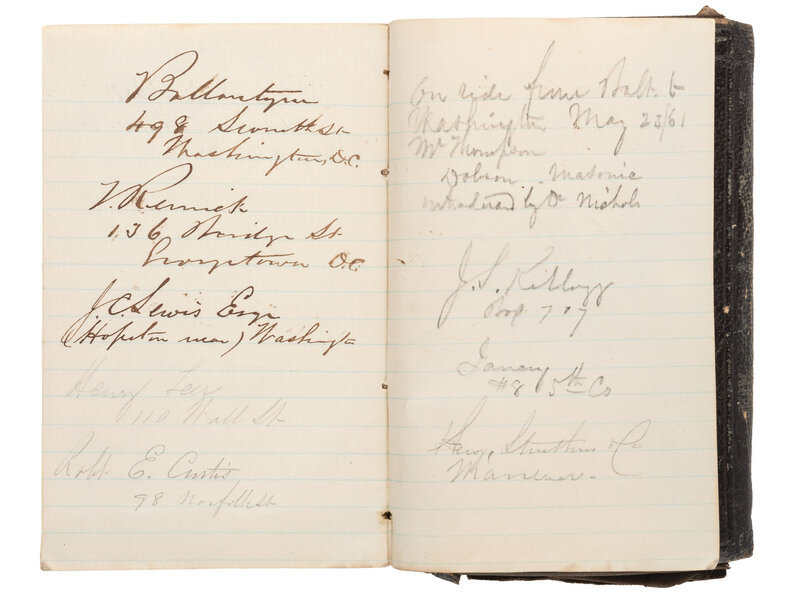 Ballantyne
498 Seventh St
Washington, D.C.
V. Rennick
136 Bridge St
Georgetown D.C.
J. C. Lewis Esqr
(Hopeton near) Washington
Henry Lee
110 Wall St
Robt E. Curtis
98 Norfolk St
On ride from Balt. to
Washington May 23/61
Mr Thompson
Dobson. Masonic
introduced by Dr Nichols
J. S. Kellogg
7 7
#8 5th Co
& Co